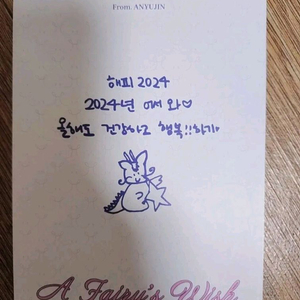 From. ANYUJIN
해피 2024
2024년 어서 와♡
올해도 건강하고 행복!!하기♥
A Fairy's Wish